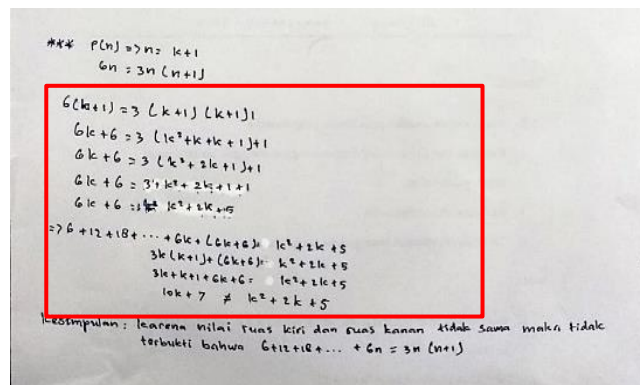 *** P(n) => n = k+1
6n = 3n (n+1)
6(k+1) = 3 (k+1) (k+1)1
6k +6 = 3 (k²+k+k+1)+1
6k +6 = 3 (k²+2k+1)+1
6k +6 = 3+k²+2k+1+1
6k +6 = k²+2k+5
=> 6+12+18+ ... +6k+(6k+6) = k²+2k+5
3k(k+1)+(6k+6) = k²+2k+5
3k+k+1+6k+6 = k²+2k+5
10k+7 ≠ k²+2k+5
Kesimpulan : karena nilai ruas kiri dan ruas kanan tidak sama maka tidak
terbukti bahwa 6+12+18+ ... + 6n = 3n (n+1)